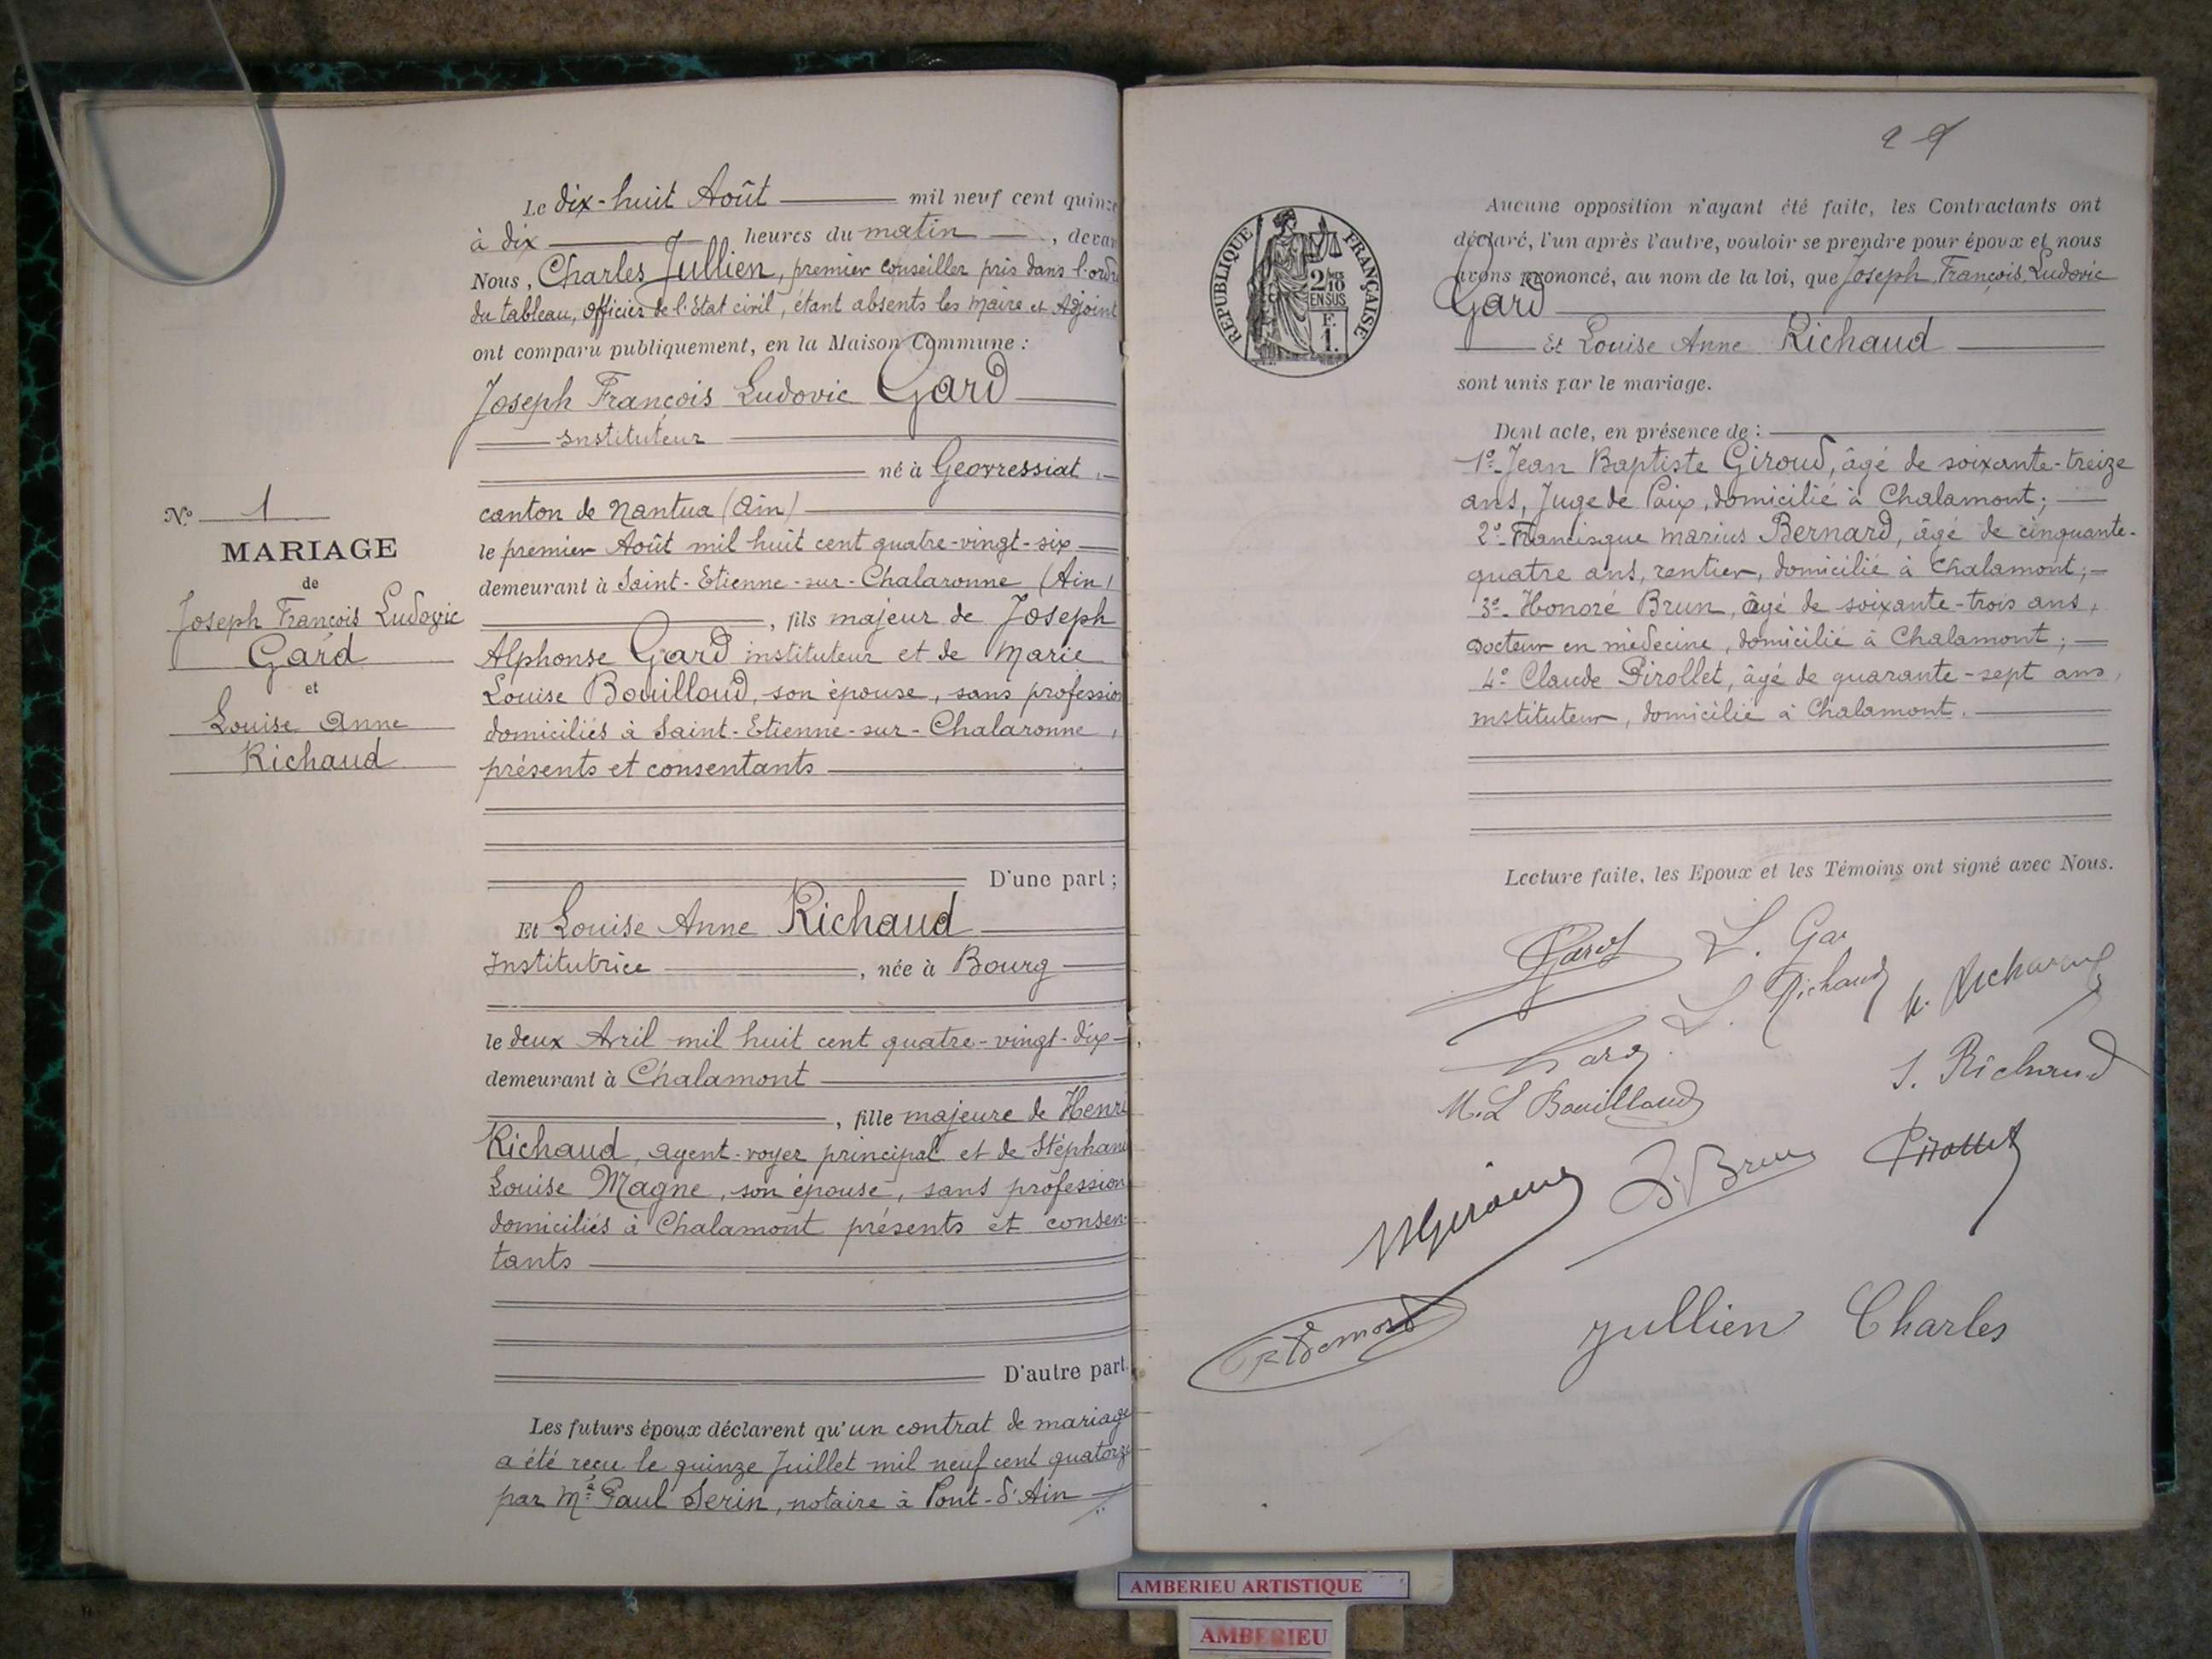 Le dix-huit Août mil neuf cent quinze
à dix heures du matin, devan
Nous, Charles Jullien, premier conseiller pris dans l'ordre
du tableau, officier de l'Etat civil, étant absents les Maire et Adjoint
ont comparu publiquement, en la Maison Commune :
Joseph François Ludovic Gard
instituteur
né à Geovressiat,
canton de Nantua (Ain)
le premier Août mil huit cent quatre-vingt-six
demeurant à Saint-Etienne-sur-Chalaronne (Ain)
, fils majeur de Joseph
Alphonse Gard instituteur et de Marie
Louise Bouilloud, son épouse, sans profession
domiciliés à Saint-Etienne-sur-Chalaronne,
présents et consentants
D'une part ;
Et Louise Anne Richaud
Institutrice, née à Bourg
le deux Avril mil huit cent quatre-vingt-dix
demeurant à Chalamont
, fille majeure de Henri
Richaud, agent-voyer principal et de Stéphani
Louise Magne, son épouse, sans profession
domiciliés à Chalamont présents et consen-
tants
D'autre part.
Les futurs époux déclarent qu'un contrat de mariage
a été reçu le quinze Juillet mil neuf cent quatorze
par Me Paul Serin, notaire à Pont-d'Ain
N° 1
MARIAGE
de
Joseph François Ludovic
Gard
et
Louise Anne
Richaud
REPUBLIQUE FRANÇAISE
2/10
EN SUS
F.
1.
Aucune opposition n'ayant été faite, les Contractants ont
déclaré, l'un après l'autre, vouloir se prendre pour époux et nous
avons prononcé, au nom de la loi, que Joseph, François, Ludovic
Gard
Et Louise Anne Richaud
sont unis par le mariage.
Dont acte, en présence de :
1° Jean Baptiste Giroud, âgé de soixante-treize
ans, Juge de Paix, domicilié à Chalamont;
2° Francisque Marius Bernard, âgé de cinquante-
quatre ans, rentier, domicilié à Chalamont;
3° Honoré Brun, âgé de soixante-trois ans,
Docteur en médecine, domicilié à Chalamont;
4° Claude Pirollet, âgé de quarante-sept ans,
instituteur, domicilié à Chalamont.
Lecture faite, les Epoux et les Témoins ont signé avec Nous.
Gard
L. Richaud
H. Richaud
Gard
S. Richaud
M. L Bouilloud
Brun
Pirollet
Jullien Charles
AMBERIEU ARTISTIQUE
AMBERIEU